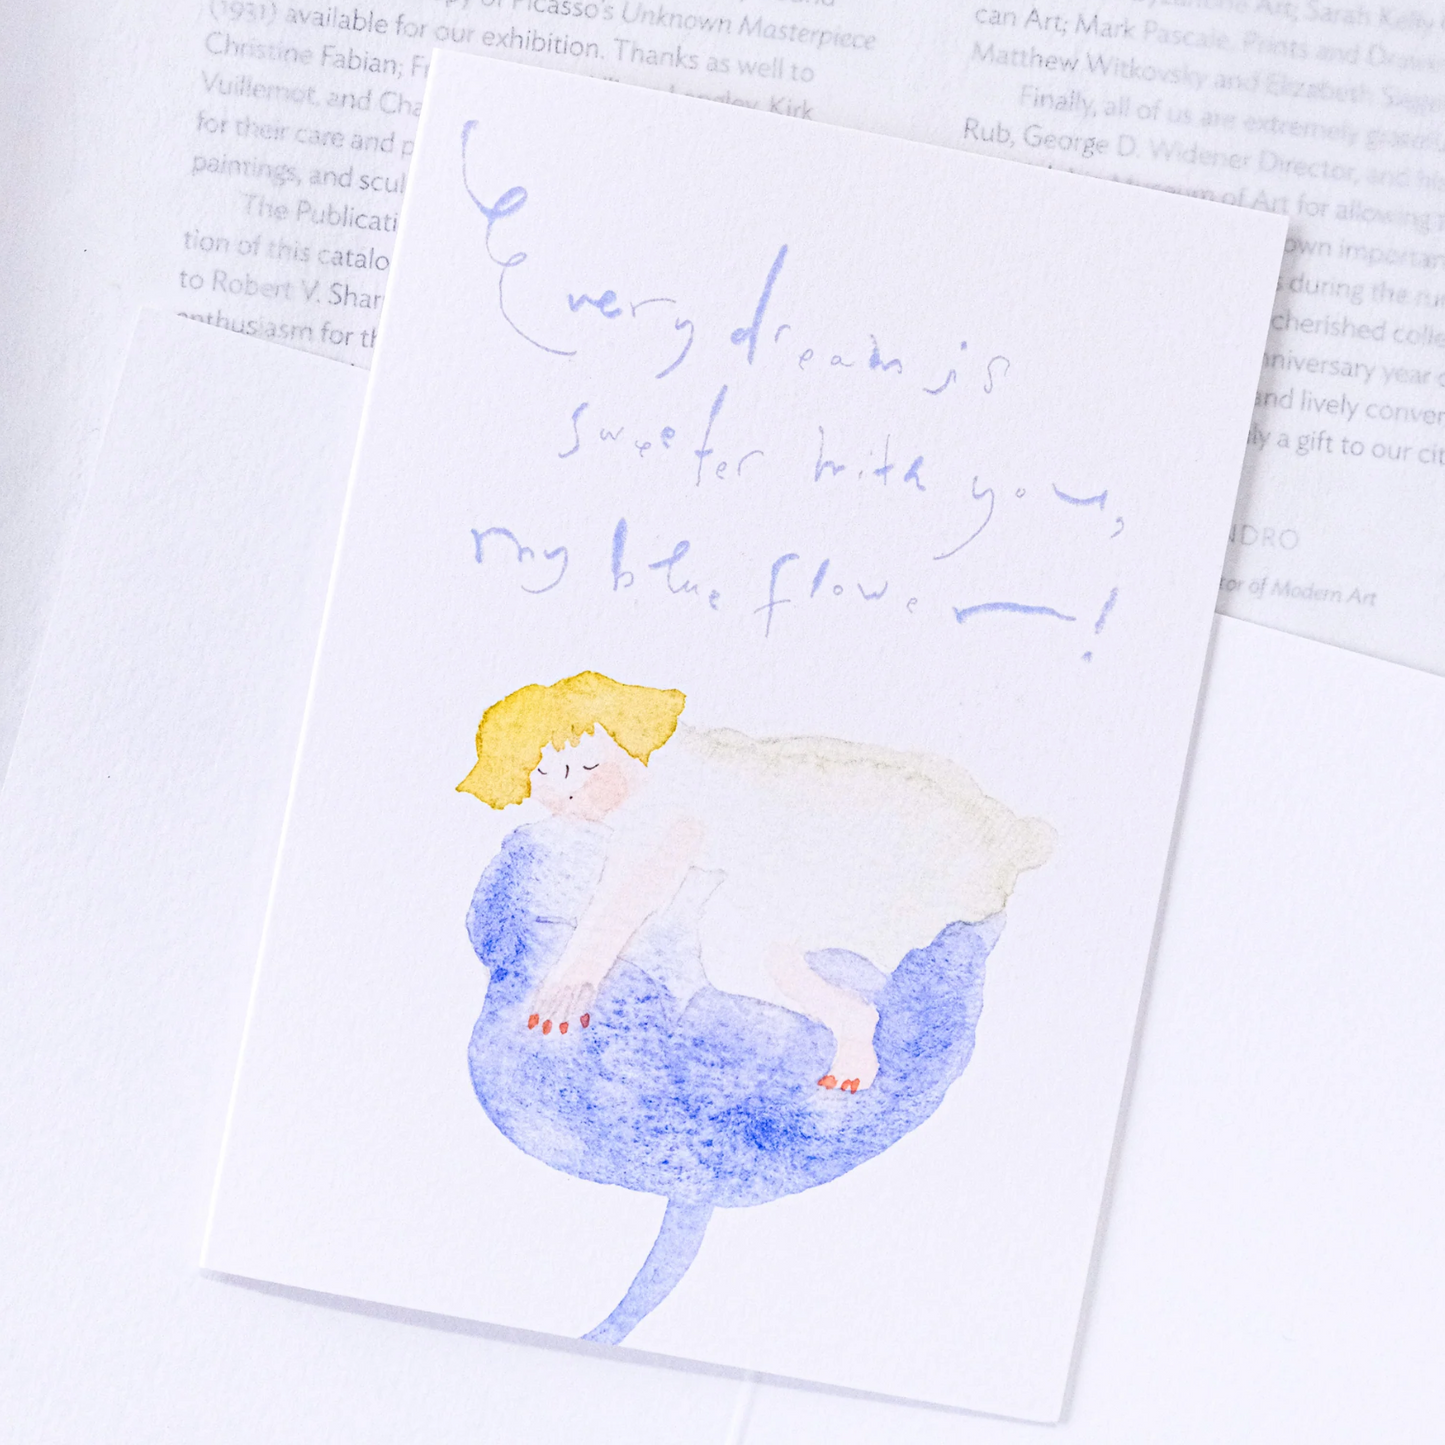 py of Picasso's Unknown Masterpiece
(1931) available for our exhibition. Thanks as well to
Christine Fabian;
Vuillemot, and Cha
Langley, Kirk
for their care and p
paintings, and scul
The Publicati
tion of this catalo
to Robert V. Shar
enthusiasm for th
Byzantine Art; Sarah Kelly
can Art; Mark Pascale, Prints and Draw
Matthew Witkovsky and Elizabeth
Finally, all of us are extremely grateful
Rub, George D. Widener Director, and his
Museum of Art for allowing
own importan
during the ru
cherished colle
nniversary year
and lively conver
a gift to our cit
NDRO
tor of Modern Art
Every dream is
sweeter with you,
my blue flower!